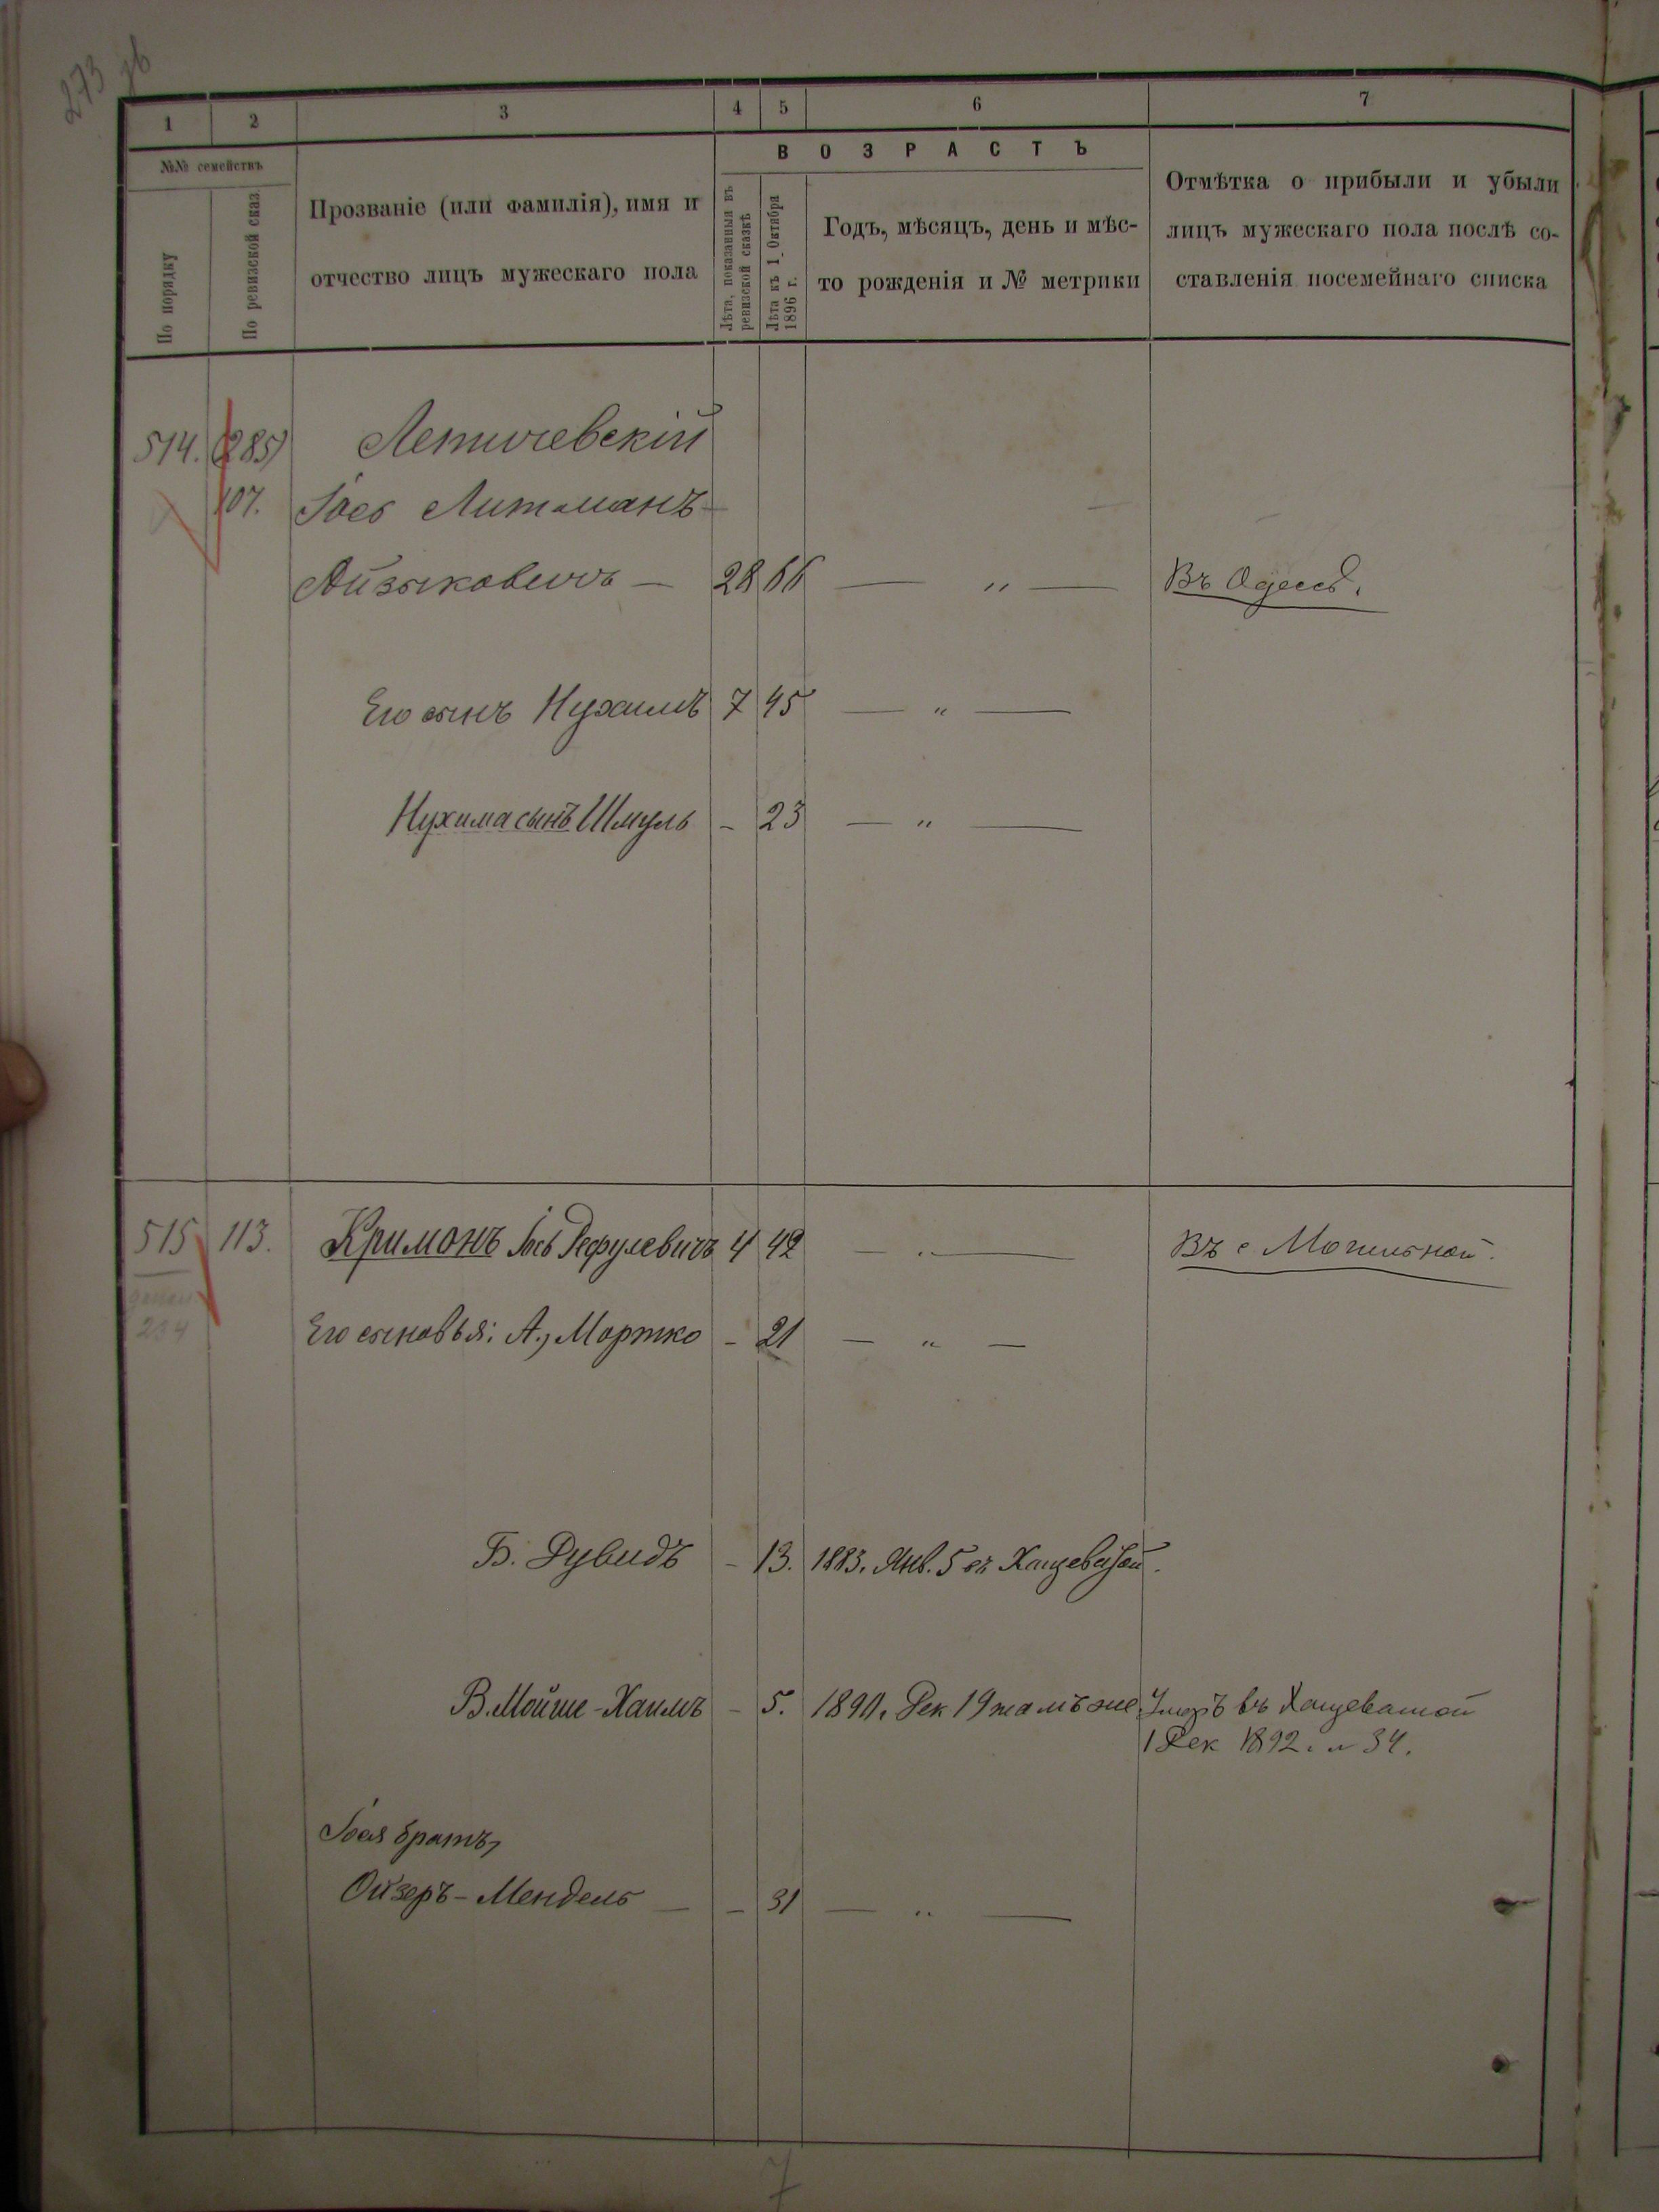 273 об
1 2 3 4 5 6 7
№№ семействъ
По порядку
По ревизской сказ.
Прозваніе (или фамилія), имя и
отчество лицъ мужескаго пола
ВОЗРАСТЪ
Лѣта, показанныя въ
ревизской сказкѣ
Лѣта къ 1 Октября
1896 г.
Годъ, мѣсяцъ, день и мѣс-
то рожденія и № метрики
Отмѣтка о прибыли и убыли
лицъ мужескаго пола послѣ со-
ставленія посемейнаго списка
514. (285) Летичевскій
107. Іось Литманъ-
Айзыковичъ — 28 66 — " — Въ Одессѣ.
Его сынъ Нухимъ 7 45 — " —
Нухима сынъ Шмуль - 23 — " —
515 113. Кримонъ Іось Рефулевичъ 4 42 — " — Въ с Могильной.
234
Его сыновья: А., Мортко - 21 — " —
Б. Дувидъ - 13. 1883. Янв. 5 въ Хащеватой.
В. Мойше-Хаимъ - 5. 1890. Дек 19 тамъ же Умеръ въ Хащеватой
1 Дек 1892. № 34.
Іося братъ,
Ойзеръ-Мендель — - 31 — " —
7